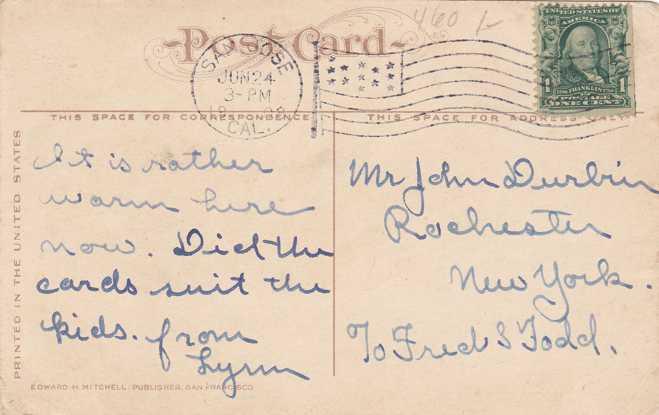 460 1-
Post Card
SAN JOSE
JUN 24
3-PM
CAL.
UNITED STATES OF AMERICA
FRANKLIN
POSTAGE
1 1
ONE CENT
THIS SPACE FOR CORRESPONDENCE
THIS SPACE FOR ADDRESS ONLY
PRINTED IN THE UNITED STATES
It is rather
warm here
now. Did the
cards suit the
kids. from
Lynn
Mr John Durbin
Rochester
New York.
To Fred S Todd.
EDWARD H. MITCHELL, PUBLISHER, SAN FRANCISCO